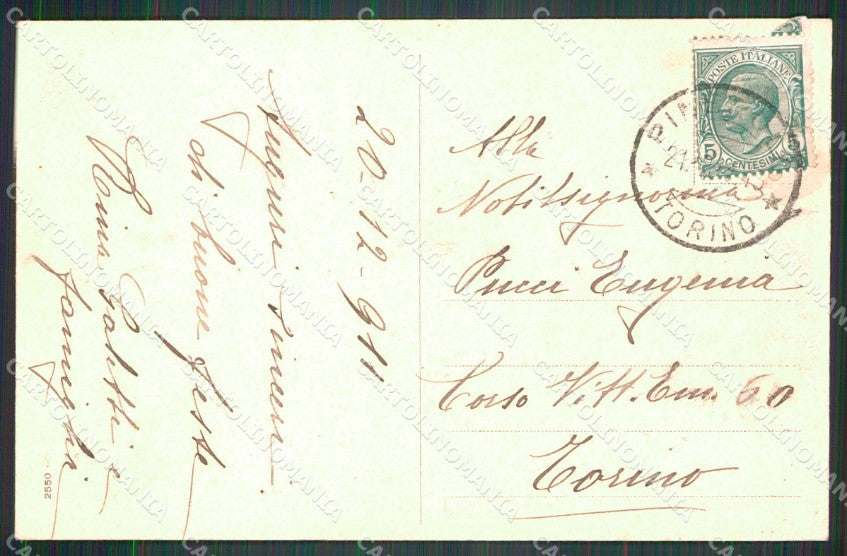 20-12-911
Auguri sinceri
di buone feste
e
famiglia
2550
POSTE ITALIANE
5 CENTESIMI 5
TORINO
Alla
Nobilsignorina
Pucci Eugenia
Corso Vitt. Em. 60
Torino
CARTOLINOMANIA